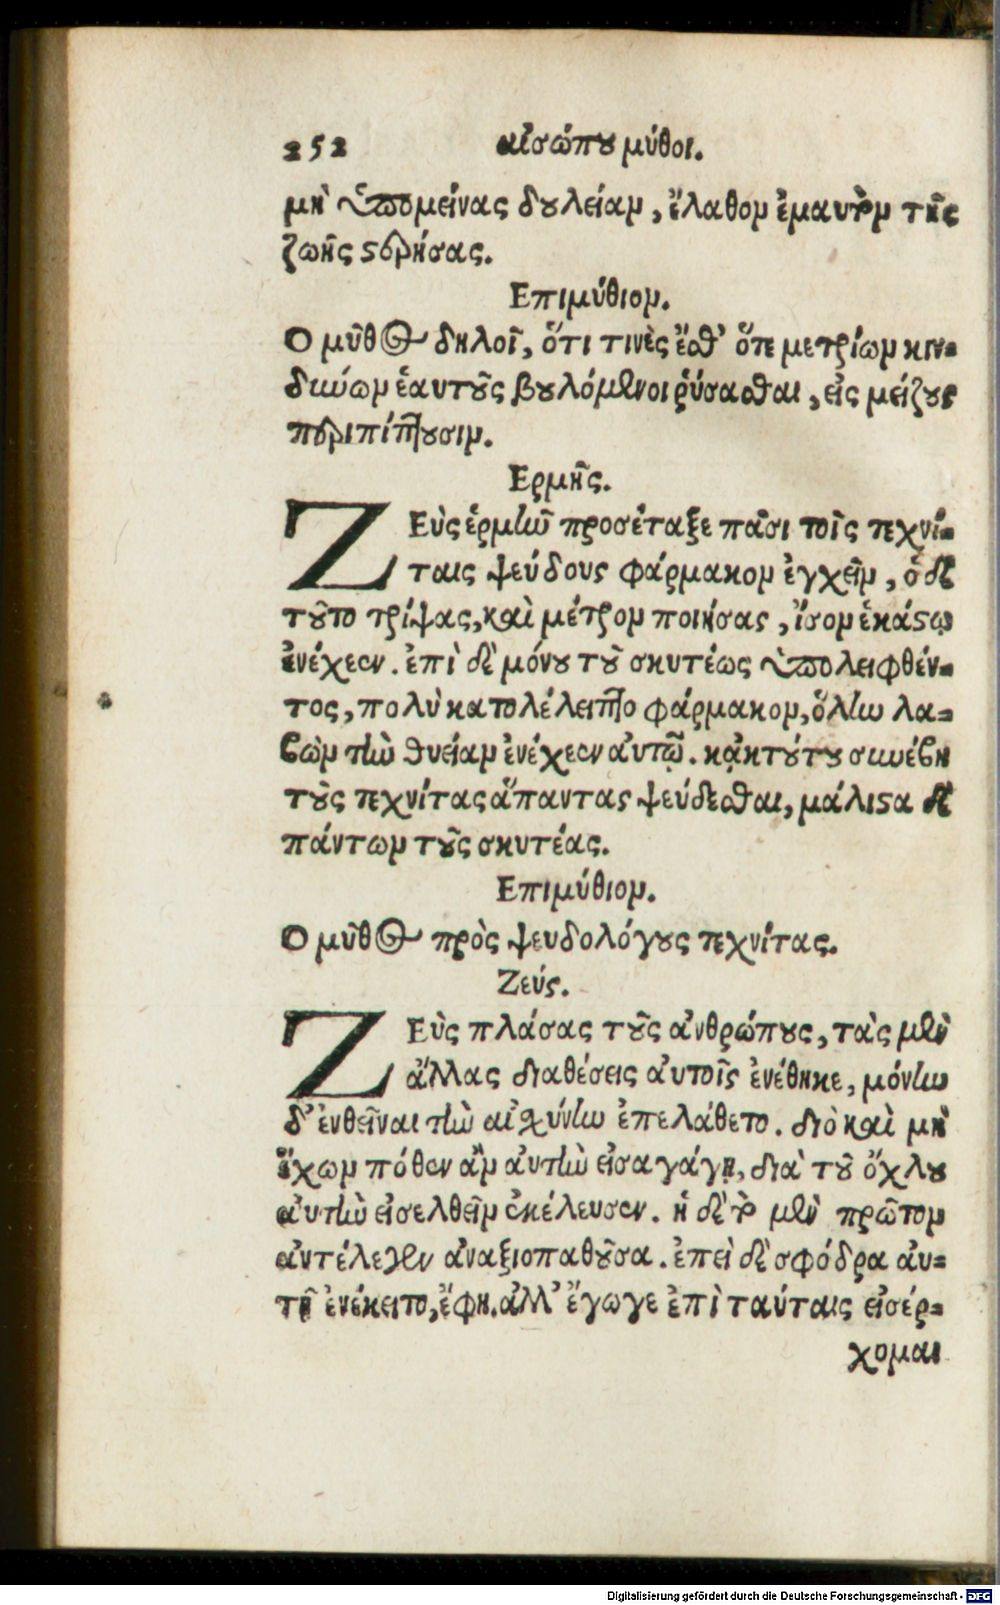 252 αἰσώπου μύθοι.
μὴ ὑπομείνας δουλείαν, ἔλαθον ἐμαυτὸν τῆς
ζωῆς στερήσας.
Επιμύθιον.
Ο μῦθος δηλοῖ, ὅτι τινὲς ἔσθ' ὅτε μετρίων κιν-
δύνων ἑαυτοὺς βουλόμενοι ῥύσασθαι, εἰς μείζους
περιπίπτουσιν.
Ερμῆς.
ΖΕὺς ἑρμῆν προσέταξε πᾶσι τοῖς τεχνί-
ταις ψεύδους φάρμακον ἐγχεῖν, ὁ δὲ
τοῦτο τρίψας, καὶ μέτρον ποιήσας, ἴσον ἑκάστῳ
ἐνέχεεν. ἐπὶ δὲ μόνου τοῦ σκυτέως ὑπολειφθέν-
τος, πολὺ κατολέλειπτο φάρμακον, ὅλην λα-
βὼν τὴν θυείαν ἐνέχεεν αὐτῷ. κᾀκ τούτου συνέβη
τοὺς τεχνίτας ἅπαντας ψεύδεσθαι, μάλιστα δὲ
πάντων τοὺς σκυτέας.
Επιμύθιον.
Ο μῦθος πρὸς ψευδολόγους τεχνίτας.
Ζεύς.
ΖΕὺς πλάσας τοὺς ἀνθρώπους, τὰς μὲν
ἄλλας διαθέσεις αὐτοῖς ἐνέθηκε, μόνην
δ' ἐνθεῖναι τὴν αἰσχύνην ἐπελάθετο. διὸ καὶ μὴ
ἔχων πόθεν ἂν αὐτὴν εἰσαγάγῃ, διὰ τοῦ ὄχλου
αὐτὴν εἰσελθεῖν ἐκέλευσεν. ἡ δὲ τὸ μὲν πρῶτον
ἀντέλεγεν ἀναξιοπαθοῦσα. ἐπεὶ δὲ σφόδρα αὐ-
τῇ ἐνέκειτο, ἔφη. ἀλλ' ἔγωγε ἐπὶ ταύταις εἰσέρ-
χομαι
Digitalisierung gefördert durch die Deutsche Forschungsgemeinschaft - DFG